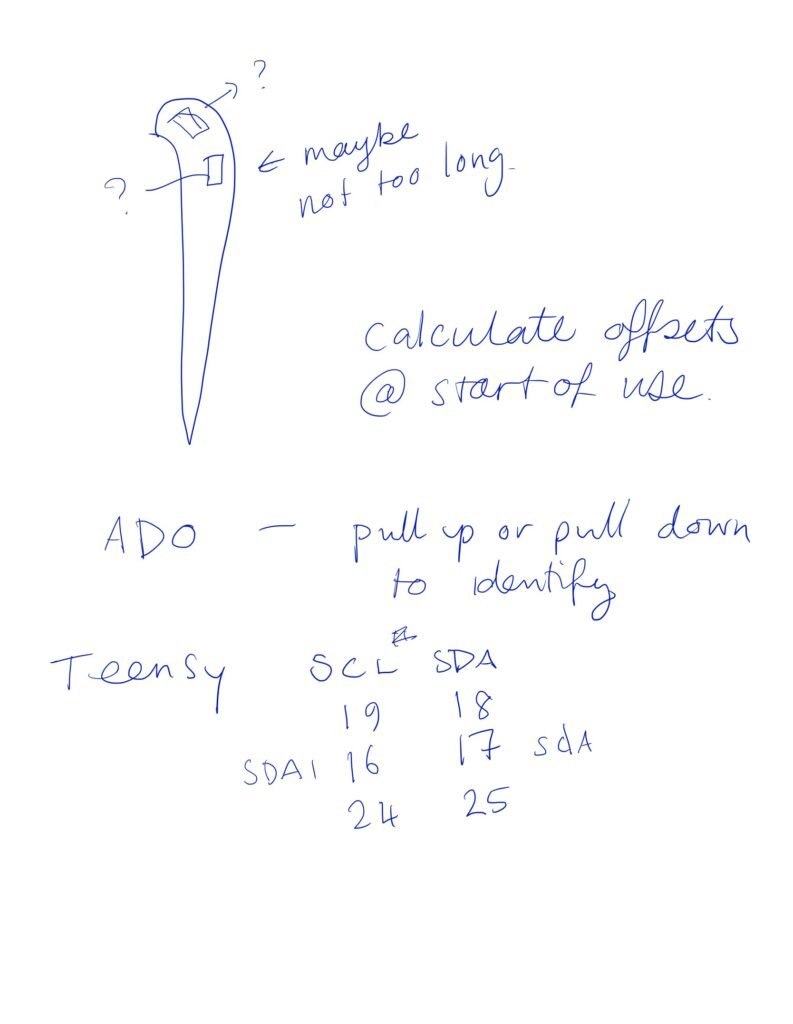 ?
← maybe
not too long.
?
calculate offsets
@ start of use.
ADO — pull up or pull down
to identify
Teensy SCL SDA
19 18
SDA1 16 17 sdA
24 25